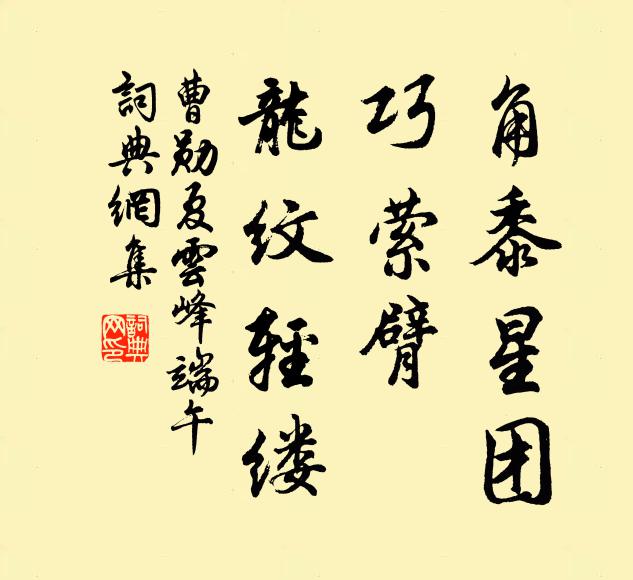 角黍星团
巧萦臂
龍紋輕缕
曹勛夏雲峰端午
詞典網集
詞典网印